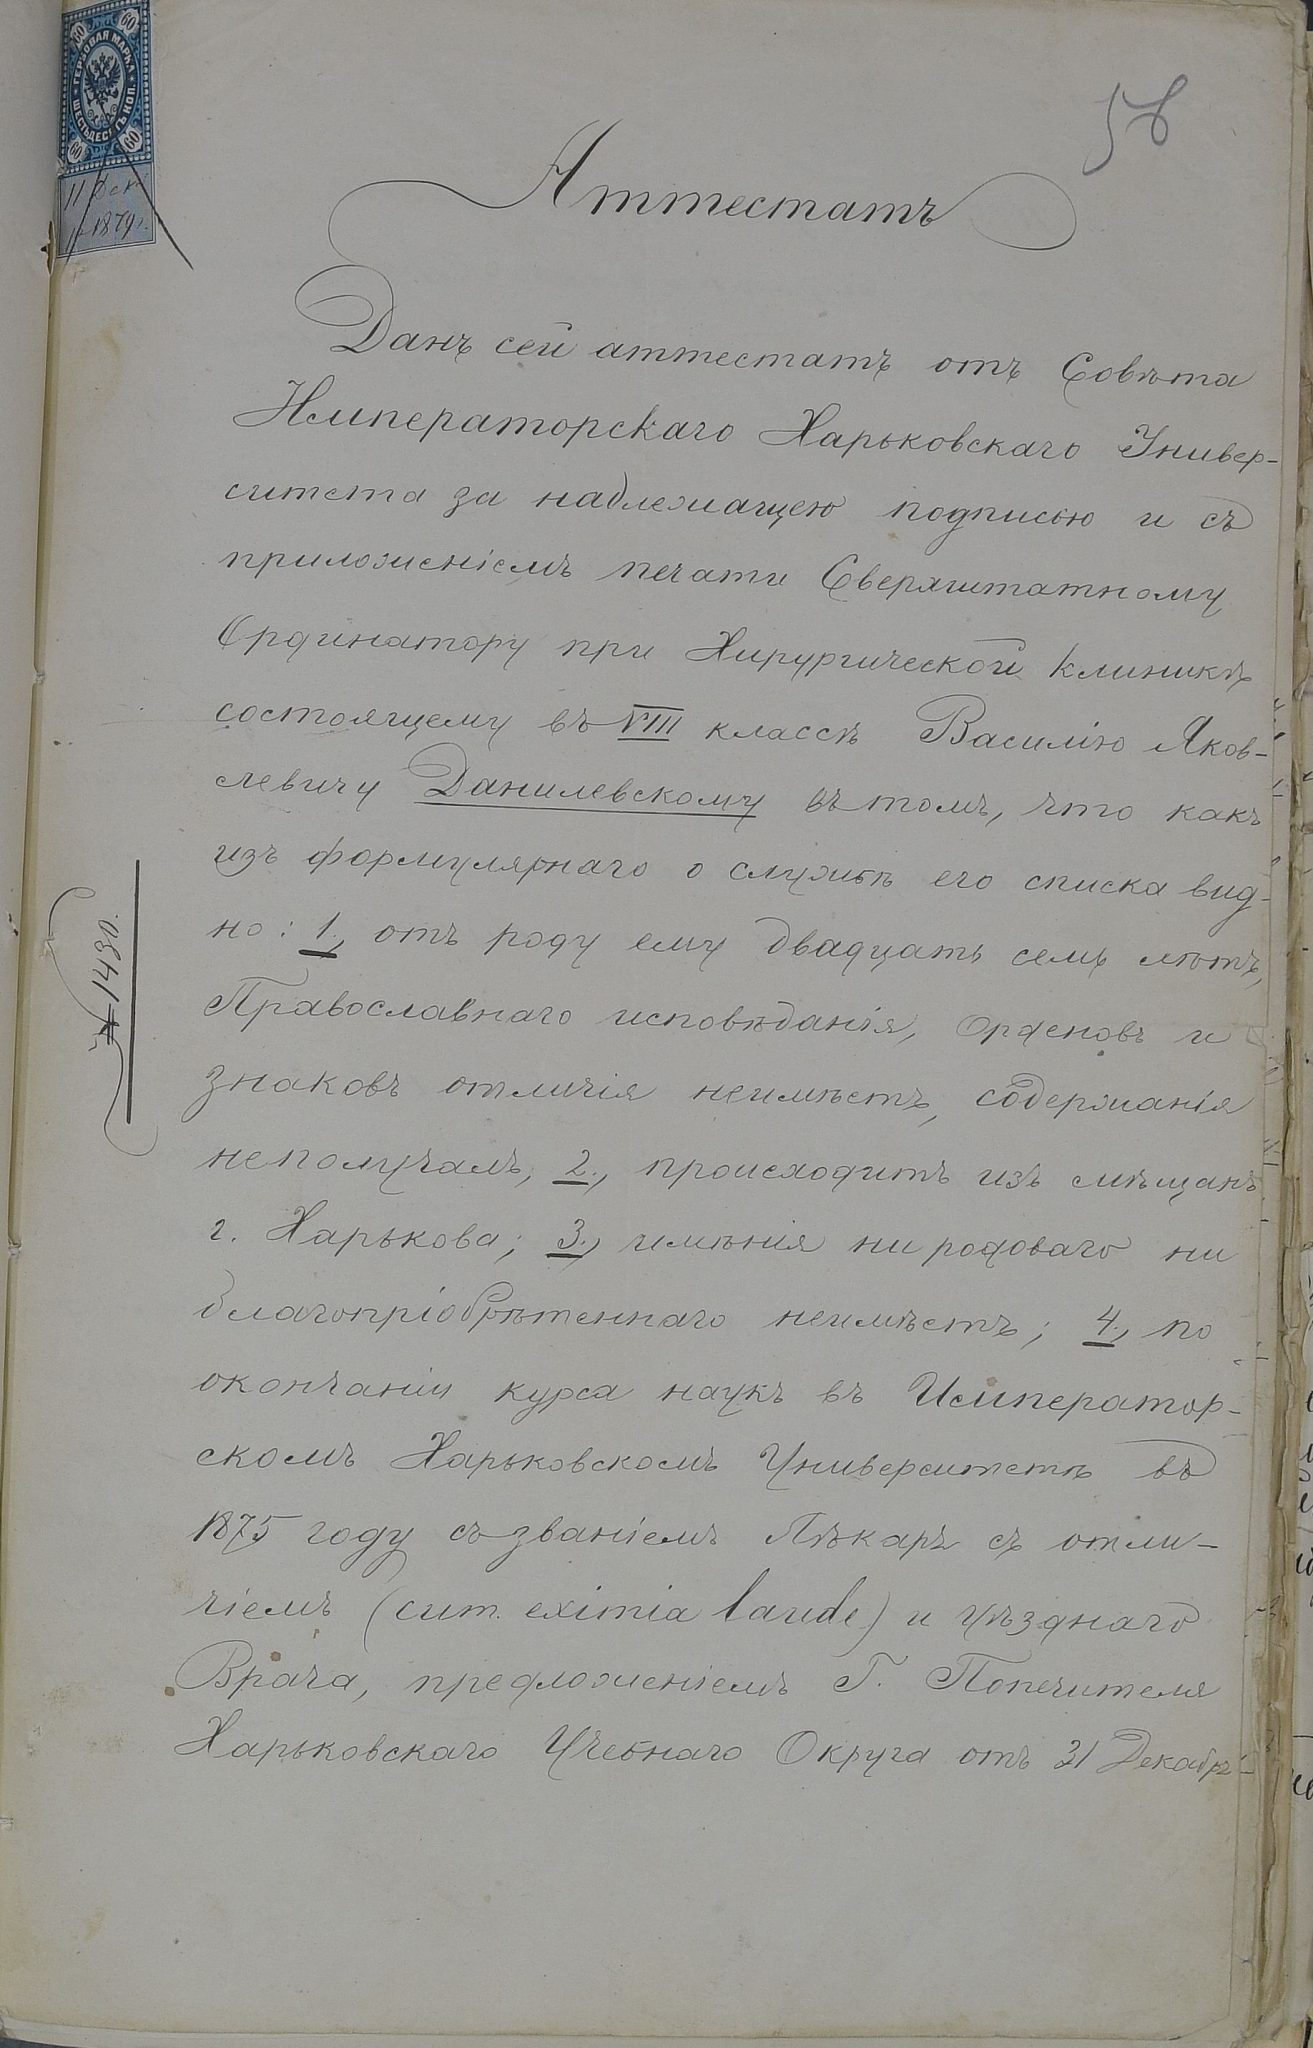 ГЕРБОВАЯ МАРКА
ШЕСТЬДЕСЯТЪ КОП.
60
60
60
60
11 Дек
1879 г.
58
Аттестатъ
Данъ сей аттестатъ отъ Совѣта
Императорскаго Харьковскаго Универ-
ситета за надлежащею подписью и съ
приложеніемъ печати Сверхштатному
Ординатору при Хирургической клиникѣ
состоящему въ VIII классѣ Василію Яков-
левичу Данилевскому въ томъ, что какъ
изъ формулярнаго о службѣ его списка вид-
но: 1., отъ роду ему двадцать семь лѣтъ,
Православнаго исповѣданія, Орденовъ и
знаковъ отличія неимѣетъ, содержанія
неполучалъ; 2., происходитъ изъ мѣщанъ
г. Харькова; 3., имѣнія ни родоваго ни
благопріобрѣтеннаго неимѣетъ; 4., по
окончаніи курса наукъ въ Император-
скомъ Харьковскомъ Университетѣ въ
1875 году съ званіемъ Лѣкаря съ отли-
чіемъ (cum eximia laude) и Уѣзднаго
Врача, предложеніемъ Г. Попечителя
Харьковскаго Учебнаго Округа отъ 31 Декабря
№ 1430.